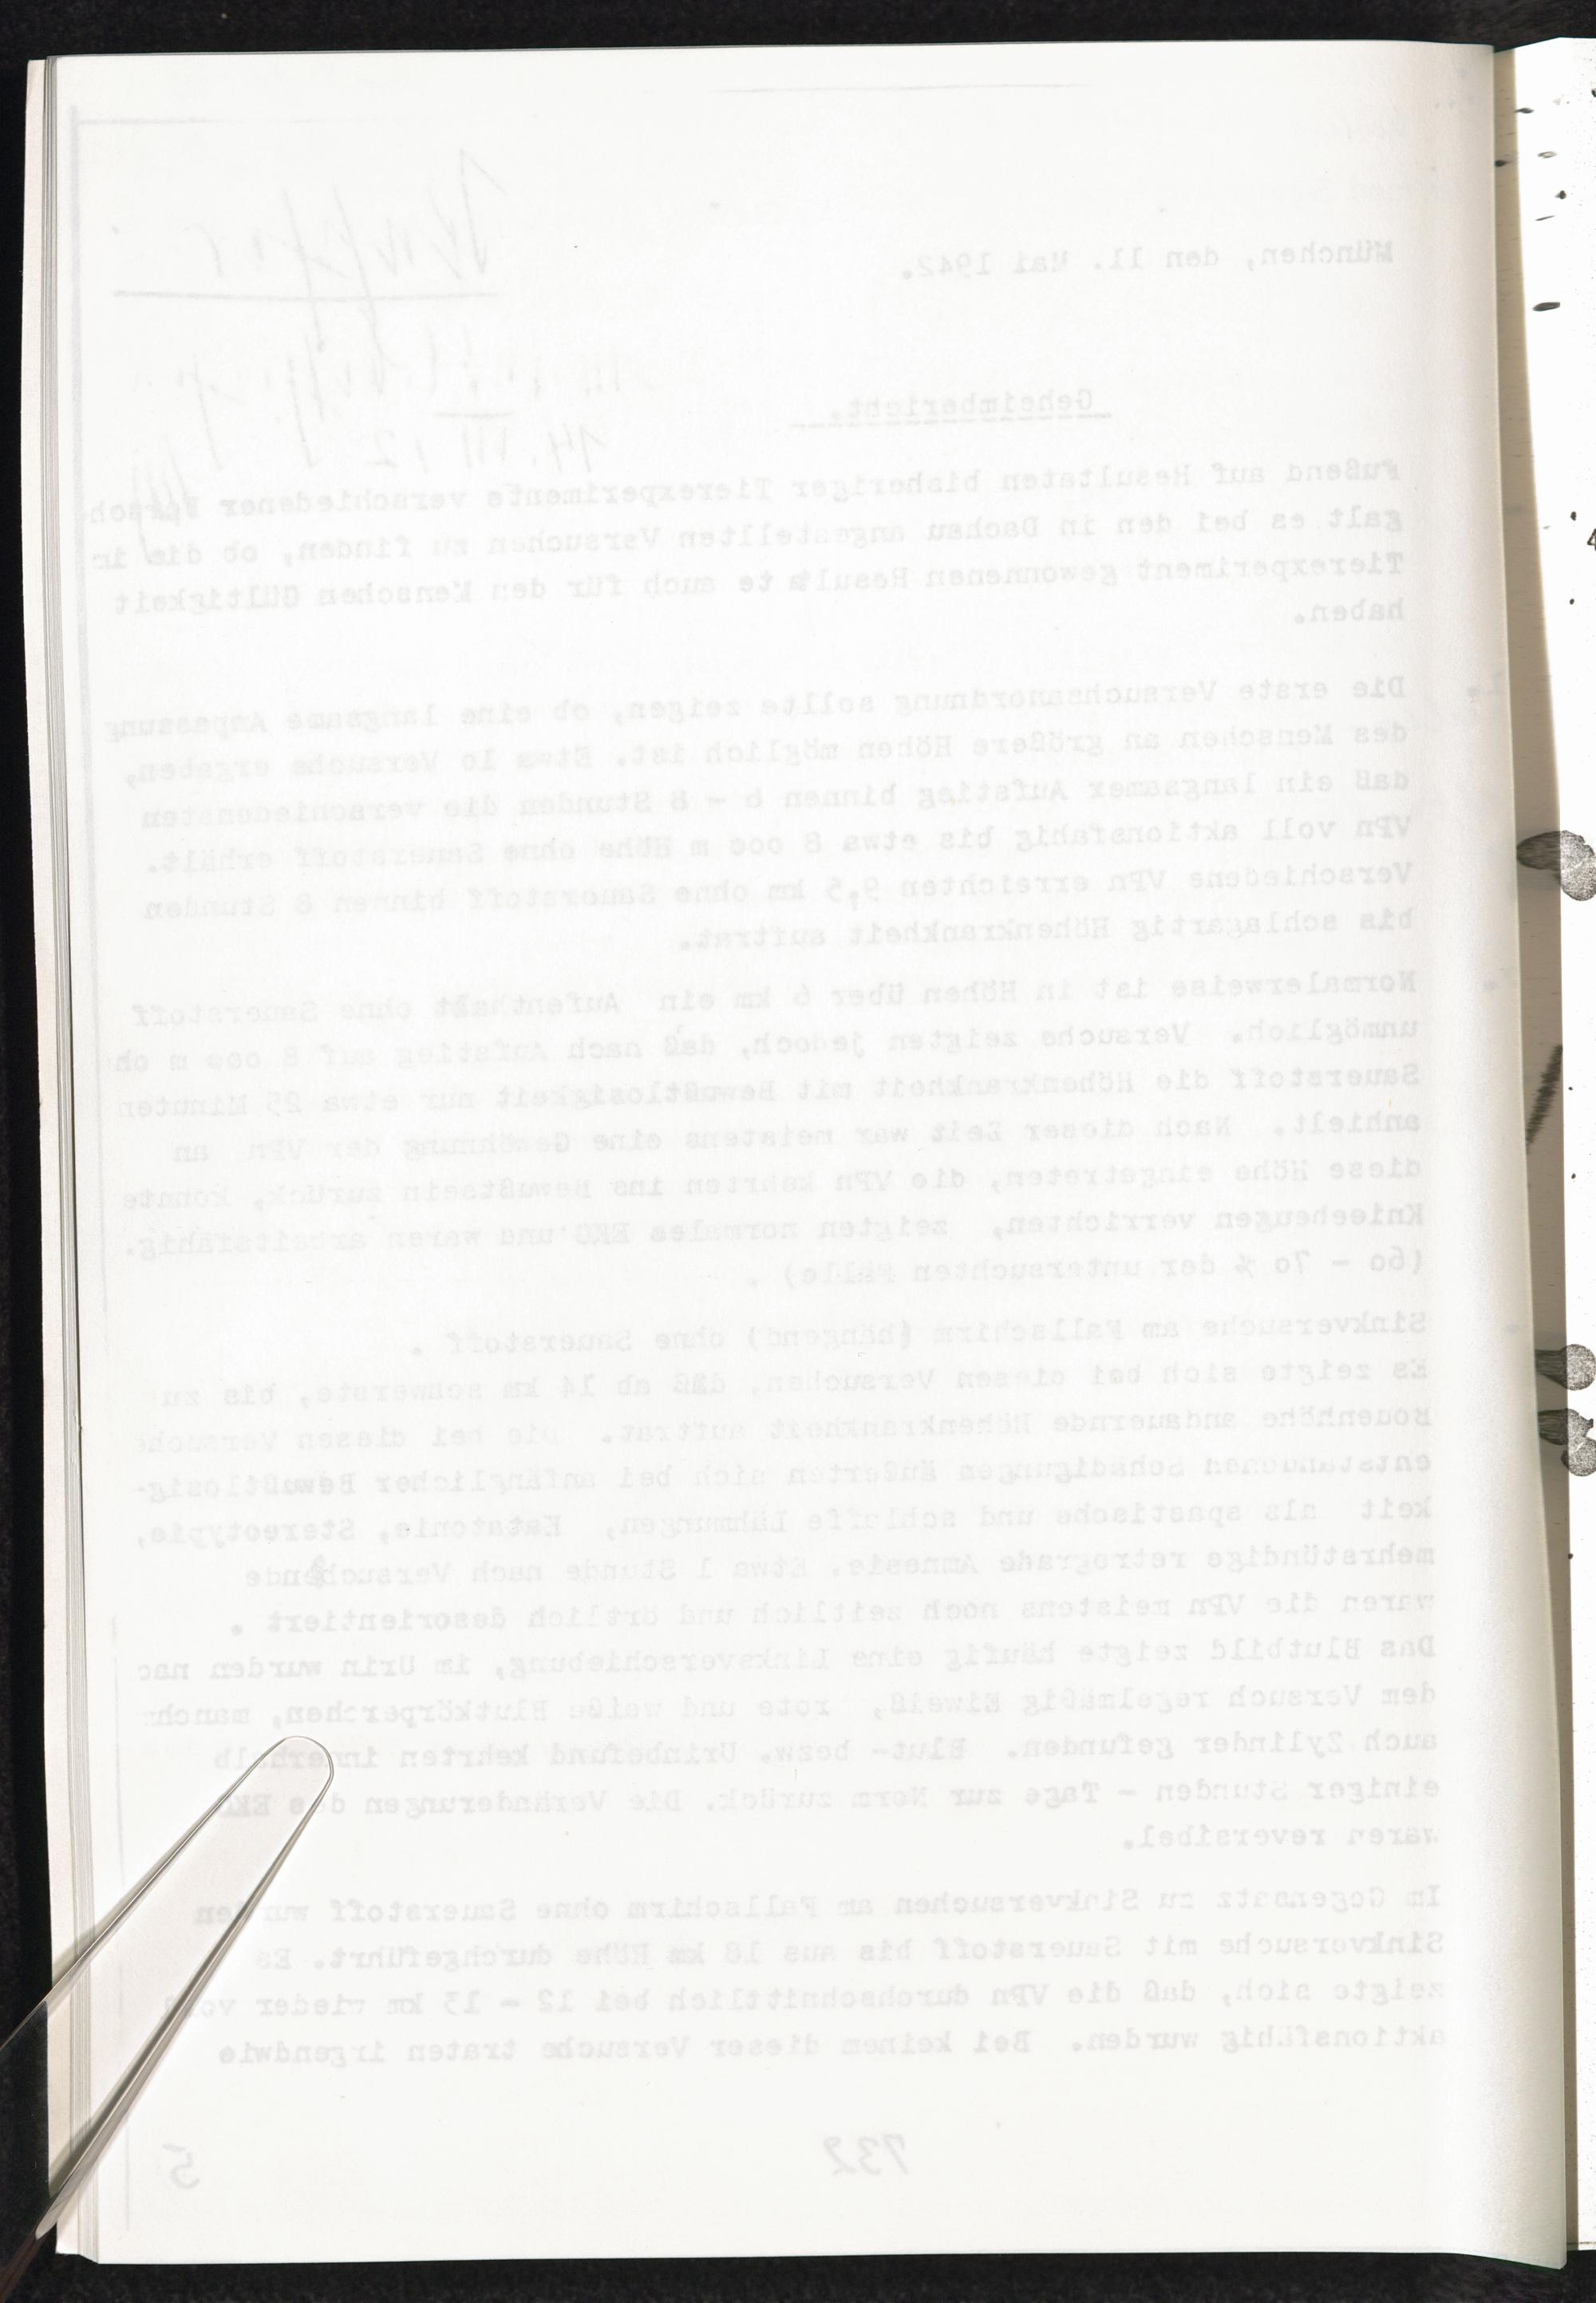 München, den 11. Mai 1942.
Geheimbericht.
Fußend auf Resultaten bisheriger Tierexperimente verschiedener Forsch
galt es bei den in Dachau angestellten Versuchen zu finden, ob die im
Tierexperiment gewonnenen Resultate auch für den Menschen Gültigkeit
haben.
1.
Die erste Versuchsanordnung sollte zeigen, ob eine langsame Anpassung
des Menschen an größere Höhen möglich ist. Etwa 1o Versuche ergaben,
daß ein langsamer Aufstieg binnen 6 - 8 Stunden die verschiedensten
VPn voll aktionsfähig bis etwa 8 ooo m Höhe ohne Sauerstoff erhält.
Verschiedene VPn erreichten 9,5 km ohne Sauerstoff binnen 8 Stunden
bis schlagartig Höhenkrankheit auftrat.
Normalerweise ist in Höhen über 6 km ein Aufenthalt ohne Sauerstoff
unmöglich. Versuche zeigten jedoch, daß nach Aufstieg auf 8 ooo m oh
Sauerstoff die Höhenkrankheit mit Bewußtlosigkeit nur etwa 25 Minuten
anhielt. Nach dieser Zeit war meistens eine Gewöhnung der VPn an
diese Höhe eingetreten, die VPn kehrten ins Bewußtsein zurück, konnte
Kniebeugen verrichten, zeigten normales EKG und waren arbeitsfähig.
(6o - 7o % der untersuchten Fälle) .
Sinkversuche am Fallschirm (hängend) ohne Sauerstoff .
Es zeigte sich bei diesen Versuchen, daß ab 14 km schwerste, bis zu
Bodenhöhe andauernde Höhenkrankheit auftrat. Die bei diesen Versuche
entstandenen Schädigungen äußerten sich bei anfänglicher Bewußtlosig-
keit als spastische und schlaffe Lähmungen, Katatonie, Stereotypie,
mehrstündige retrograde Amnesie. Etwa 1 Stunde nach Versuchende
waren die VPn meistens noch zeitlich und örtlich desorientiert .
Das Blutbild zeigte häufig eine Linksverschiebung, im Urin wurden nac
dem Versuch regelmäßig Eiweiß, rote und weiße Blutkörperchen, manch
auch Zylinder gefunden. Blut- bezw. Urinbefund kehrten innerhalb
einiger Stunden - Tage zur Norm zurück. Die Veränderungen des EKG
waren reversibel.
Im Gegensatz zu Sinkversuchen am Fallschirm ohne Sauerstoff wurden
Sinkversuche mit Sauerstoff bis aus 18 km Höhe durchgeführt. Es
zeigte sich, daß die VPn durchschnittlich bei 12 - 13 km wieder voll
aktionsfähig wurden. Bei keinem dieser Versuche traten irgendwie
732
5